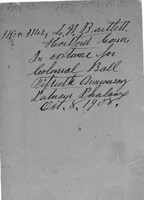 Mrs Mary L. N. Bartlett.
Hartford Conn
In costume for
Colonial Ball
Fiftieth Anniversary
Putnam Phalanx
Oct. 8, 1908.